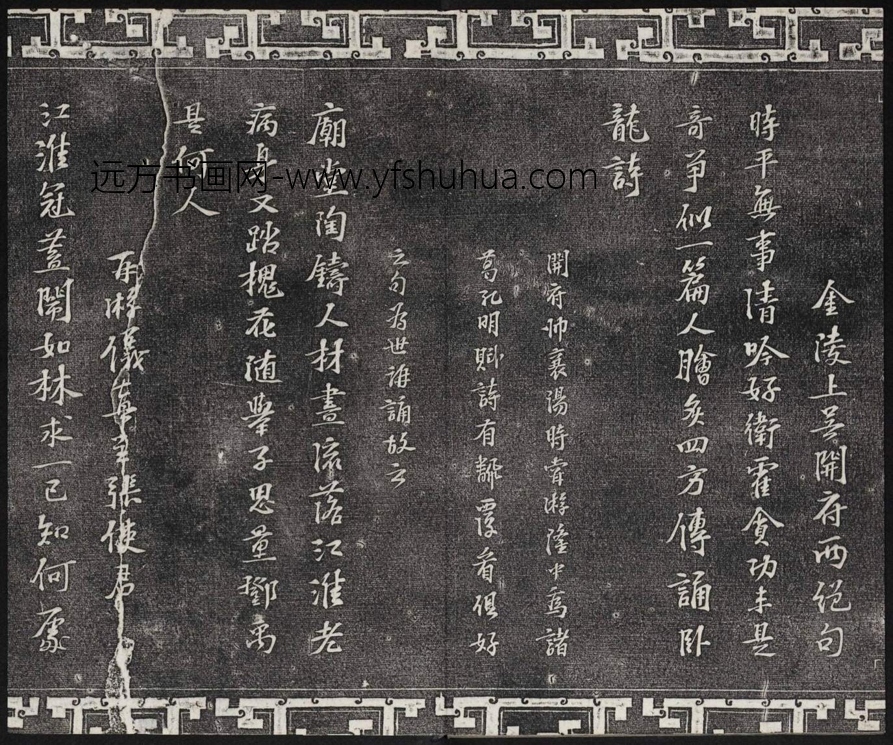 金陵上吳開府兩絕句
時平無事清吟好衛霍貪功未是
奇爭似一篇人膾炙四方傳誦卧
龍詩
開府帥襄陽時嘗游隆中為諸
葛孔明賦詩有翻覆看俱好
之句為世誦故云
廟堂陶鑄人材盡流落江淮老
病身又踏槐花隨舉子思量鄧禹
是何人
再游儀真呈張使君
江淮冠蓋鬧如林求一己知何處
远方书画网-www.yfshuhua.com